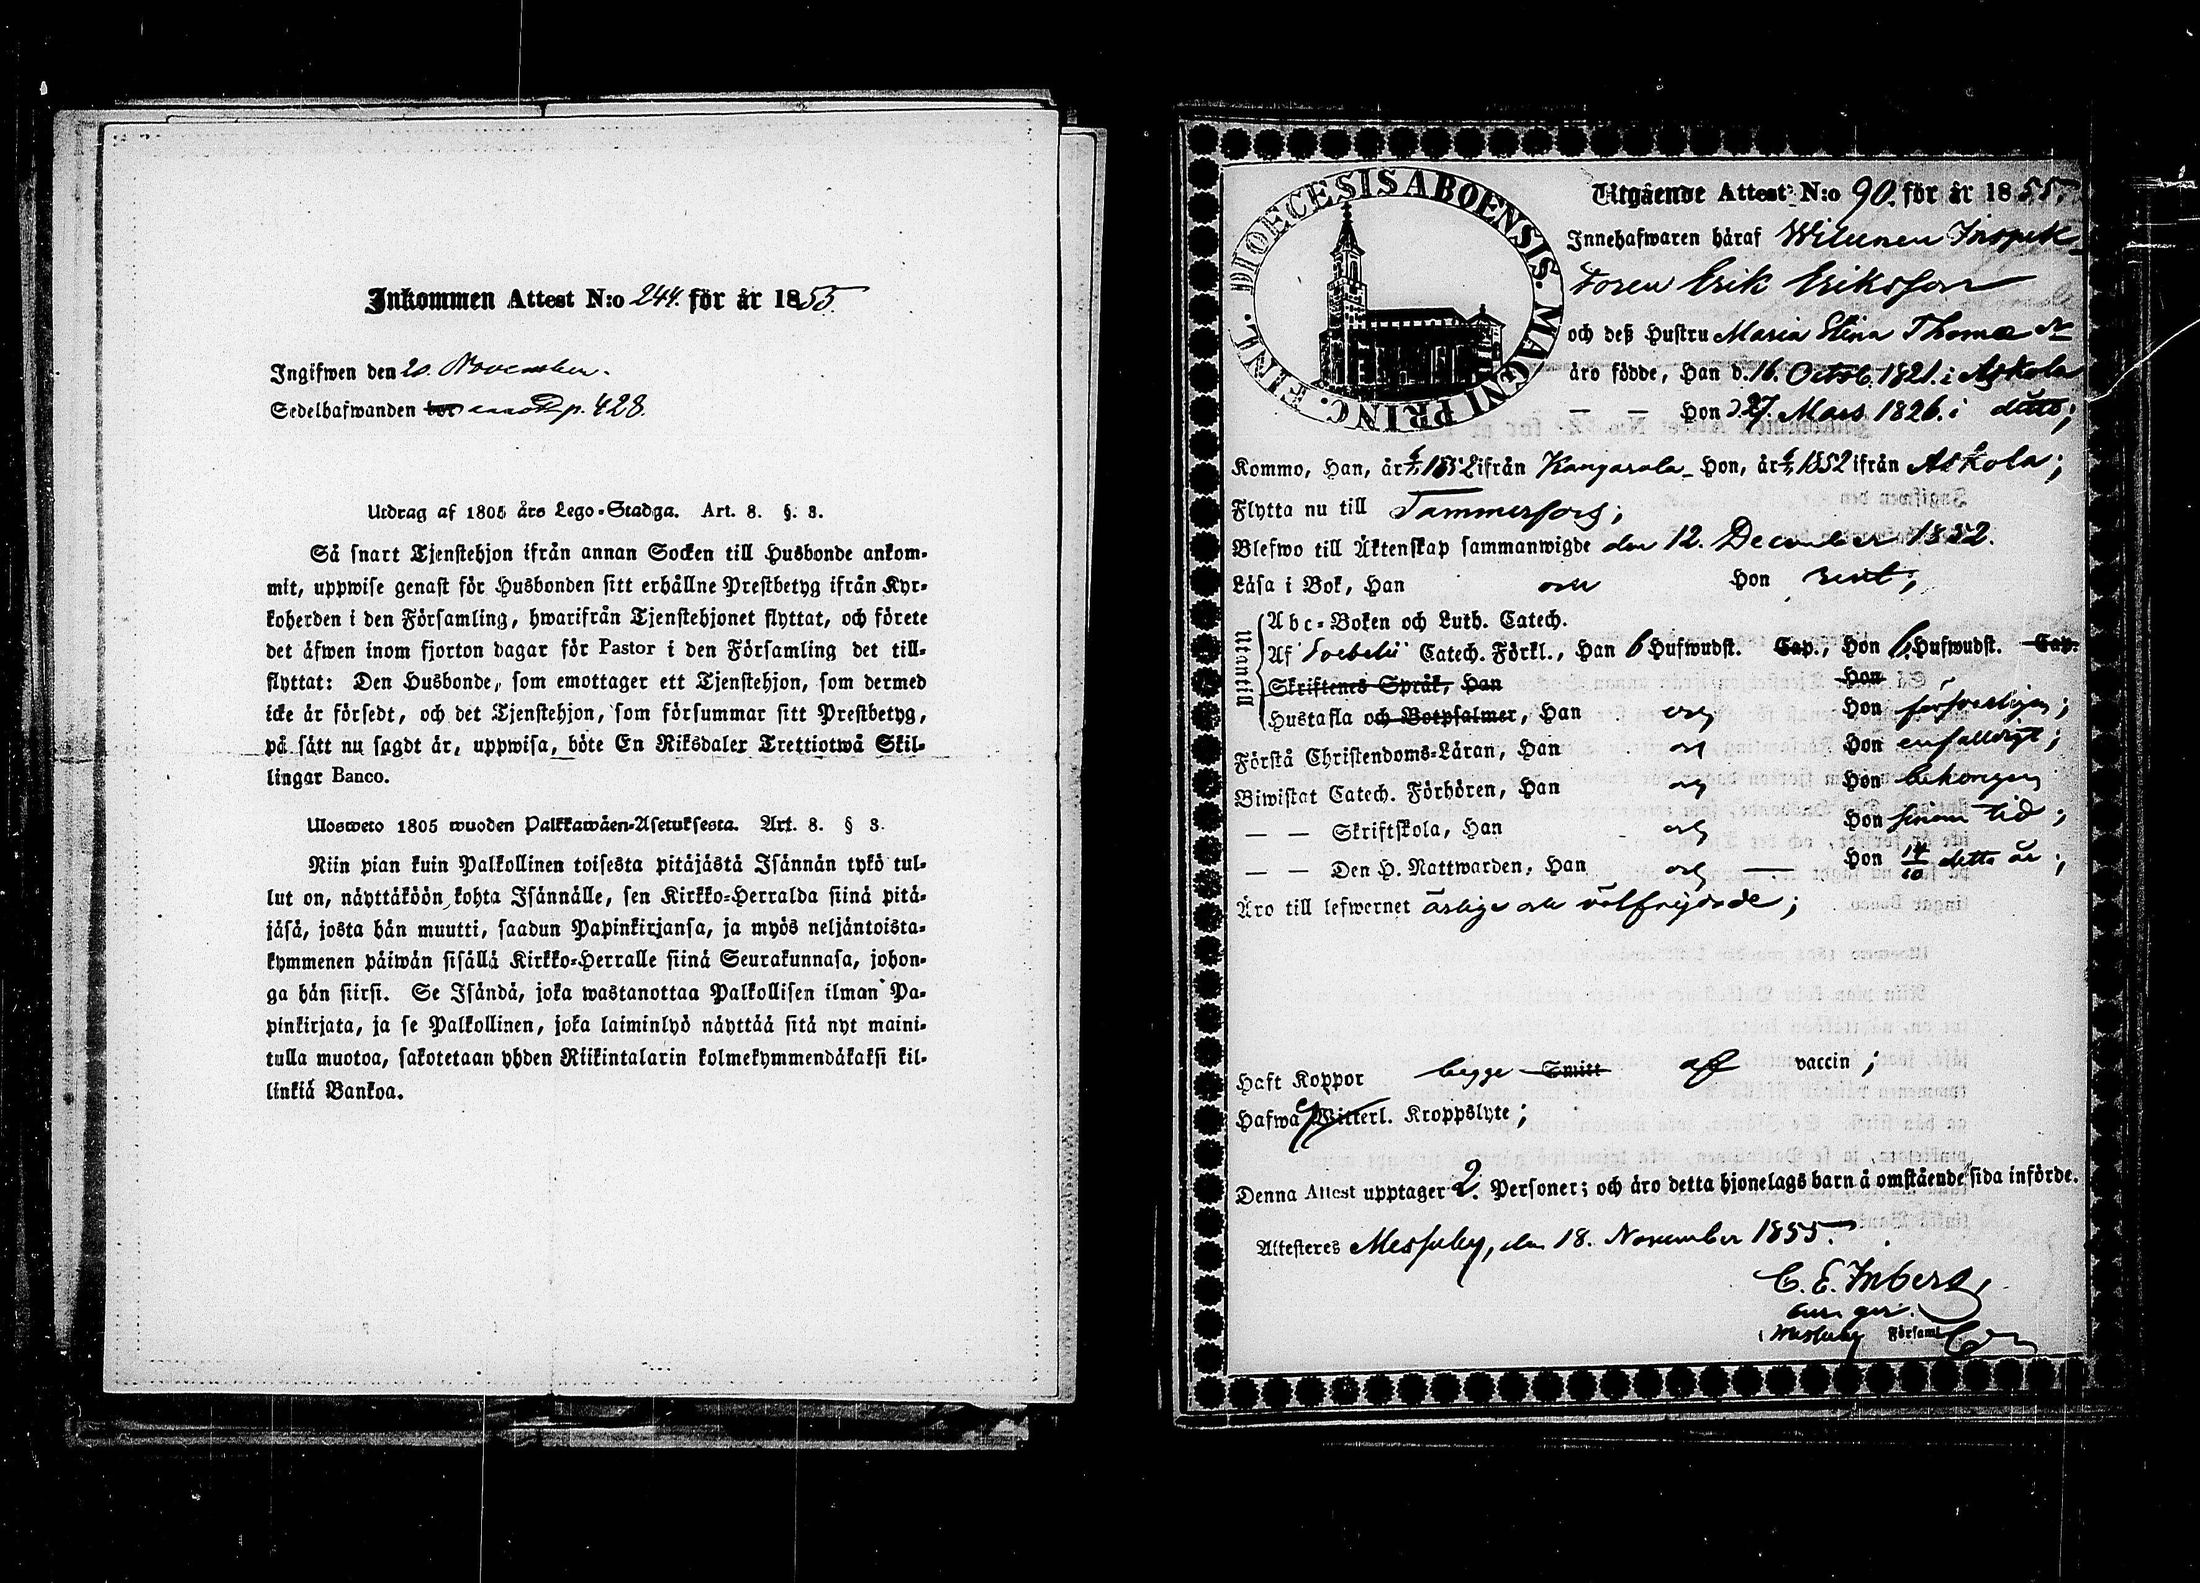 Inkommen Attest N:o 244. för år 1855.
Ingifwen den 20. November.
Sedelhafwanden p. 428.
Utdrag af 1805 års Lego-Stadga. Art. 8. §. 3.
Så snart Tjenstehjon ifrån annan Socken till Husbonde ankom-
mit, uppwise genast för Husbonden sitt erhållne Prestbetyg ifrån Kyr-
koherden i den Församling, hwarifrån Tjenstehjonet flyttat, och förete
det äfwen inom fjorton dagar för Pastor i den Församling det till-
flyttat: Den Husbonde, som emottager ett Tjenstehjon, som dermed
icke är försedt, och det Tjenstehjon, som försummar sitt Prestbetyg,
på sätt nu sagdt är, uppwisa, böte En Riksdaler Trettiotwå Skil-
lingar Banco.
Ulosweto 1805 wuoden Palkkawäen-Asetuksesta. Art. 8. § 3.
Niin pian kuin Palkollinen toisesta pitäjästä Isännän tykö tul-
lut on, näyttäköön kohta Isännälle, sen Kirkko-Herralda siinä pitä-
jäsä, josta hän muutti, saadun Papinkirjansa, ja myös neljäntoista-
kymmenen päiwän sisällä Kirkko-Herralle siinä Seurakunnasa, johon-
ga hän siirsi. Se Isändä, joka wastanottaa Palkollisen ilman Pa-
pinkirjata, ja se Palkollinen, joka laiminlyö näyttää sitä nyt maini-
tulla muotoa, sakotetaan yhden Riikintalarin kolmekymmendäkaksi kil-
linkiä Bankoa.
DIOECESIS ABOENSIS. MAGNI PRINC. FINL.
Utgående Attest N:o 90. för år 1855.
Innehafwaren häraf Inspek-
toren Erik Eriksson
och deß Hustru Maria Stina Thomæ dr
äro födde, Han d. 16. Octob. 1821. i Askola
— — Hon d. 27. Mars 1826. i ditto;
Kommo, Han, år 1852 ifrån Kangasala Hon, år 1852 ifrån Askola;
Flytta nu till Tammerfors;
Blefwo till Äktenskap sammanwigde den 12. December 1852.
Läsa i Bok, Han och Hon rent;
Utantill
Abc-Boken och Luth. Catech.
Af Catech. Förkl., Han 6 Hufwudst. Cap., Hon 6 Hufwudst. Cap.
Skriftenes Språk, Han Hon
Hustafla och Botpsalmer, Han och Hon försvarligen;
Förstå Christendoms-Läran, Han och Hon enfalldigt;
Biwistat Catech. Förhören, Han och Hon behörigen
— — Skriftskola, Han och Hon sinom tid;
— — Den H. Nattwarden, Han och — Hon 14/10 detta år;
Äro till lefwernet ärlige och välfrejdade;
Haft Koppor begge Smitt af vaccin;
Hafwa Witterl. Kroppslyte;
Denna Attest upptager 2. Personer; och äro detta hjonelags barn å omstående sida införde.
Attesteres Messuby, den 18. November 1855.
C. E. Inberg,
i Messuby Församl